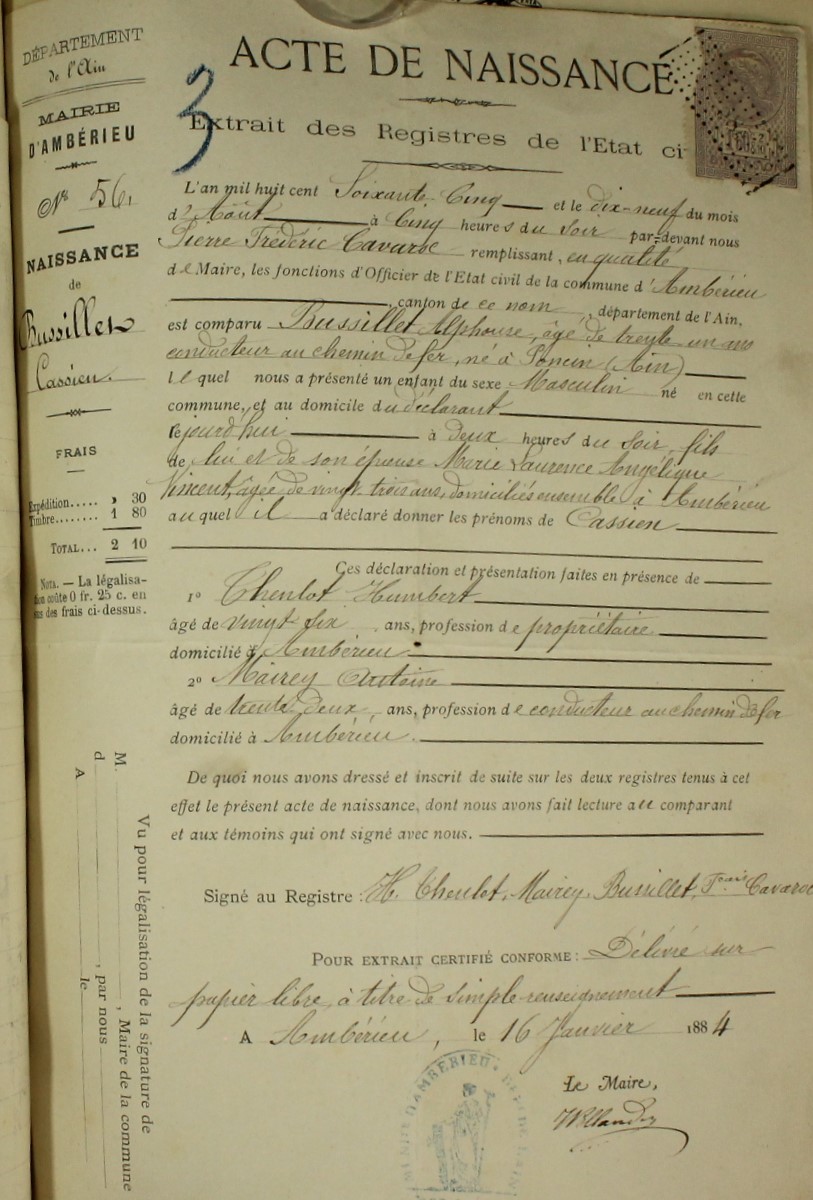 DÉPARTEMENT
de l'Ain
MAIRIE
D'AMBÉRIEU
Nº 56.
NAISSANCE
de
Bussillet
Cassien.
FRAIS
Expédition..... » 30
Timbre........ 1 80
TOTAL... 2 10
NOTA. — La légalisa-
tion coûte 0 fr. 25 c. en
sus des frais ci-dessus.
Vu pour légalisation de la signature de
M. , Maire de la commune
d , par nous
A le
3
ACTE DE NAISSANCE
Extrait des Registres de l'Etat ci
L'an mil huit cent Soixante-Cinq et le dix-neuf du mois
d'Août à Cinq heures du Soir par-devant nous
Pierre Frédéric Cavaroc remplissant, en qualité
de Maire, les fonctions d'Officier de l'Etat civil de la commune d'Ambérieu
, canton de ce nom, département de l'Ain,
est comparu Bussillet Alphonse, âgé de trente un ans
conducteur au chemin de fer, né à Poncin (Ain)
lequel nous a présenté un enfant du sexe Masculin né en cette
commune, et au domicile du déclarant
cejourd'hui à Deux heures du Soir, fils
de lui et de son épouse Marie Laurence Angélique
Vincent, âgée de vingt-trois ans, domiciliés ensemble à Ambérieu
auquel il a déclaré donner les prénoms de Cassien
Ces déclaration et présentation faites en présence de
1º Chenlot Humbert
âgé de vingt six ans, profession de propriétaire
domicilié à Ambérieu
2º Mairey Antoine
âgé de trente deux, ans, profession de conducteur au chemin de fer
domicilié à Ambérieu.
De quoi nous avons dressé et inscrit de suite sur les deux registres tenus à cet
effet le présent acte de naissance, dont nous avons fait lecture au comparant
et aux témoins qui ont signé avec nous.
Signé au Registre : H. Chenlot, Mairey, Bussillet, Cavaroc
POUR EXTRAIT CERTIFIÉ CONFORME : Délivré sur
papier libre, à titre de simple renseignement
A Ambérieu, le 16 Janvier 1884
Le Maire,